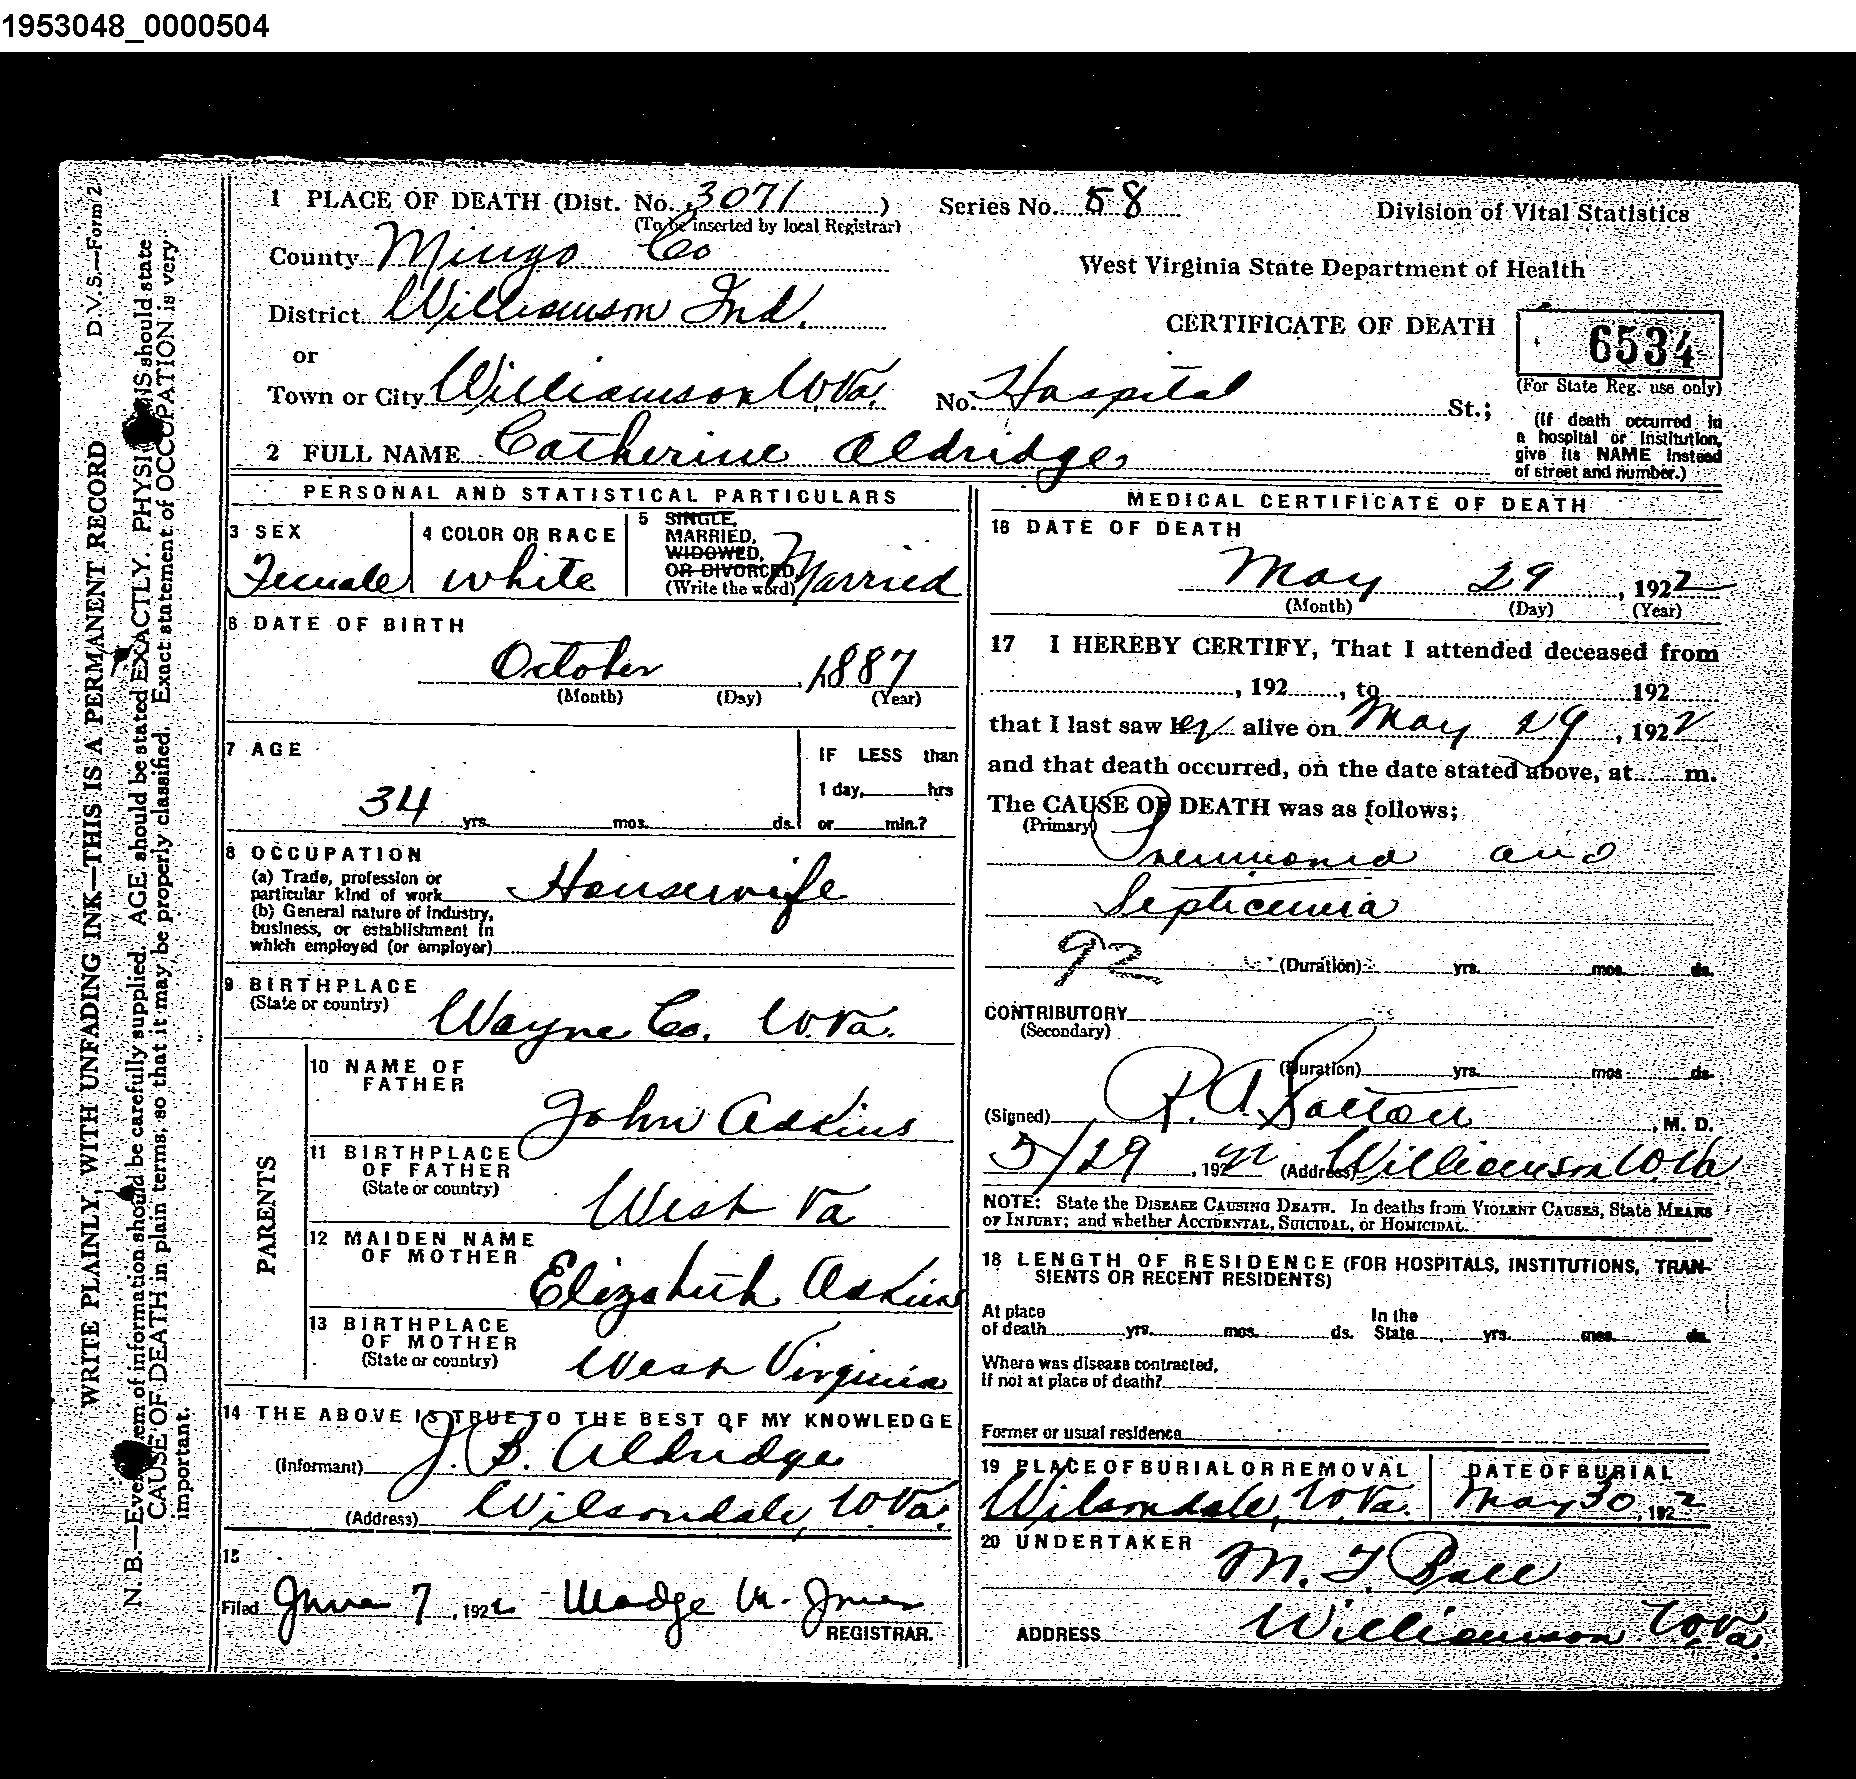 1953048_0000504
1 PLACE OF DEATH (Dist. No. 3071 ) Series No. 58 Division of Vital Statistics
(To be inserted by local Registrar)
County Mingo Co West Virginia State Department of Health
District Williamson Ind. CERTIFICATE OF DEATH 6534
or (For State Reg. use only)
Town or City Williamson W.Va. No. Hospital St.;
(If death occurred in
a hospital or institution,
give its NAME instead
of street and number.)
2 FULL NAME Catherine Aldridge
PERSONAL AND STATISTICAL PARTICULARS
3 SEX
Female
4 COLOR OR RACE
White
5 SINGLE,
MARRIED,
WIDOWED,
OR DIVORCED
(Write the word) Married
6 DATE OF BIRTH
October , 1887
(Month) (Day) (Year)
7 AGE
34 yrs. mos. ds.
IF LESS than
1 day, hrs
or min.?
8 OCCUPATION
(a) Trade, profession or
particular kind of work Housewife
(b) General nature of industry,
business, or establishment in
which employed (or employer)
9 BIRTHPLACE
(State or country) Wayne Co. W.Va.
PARENTS
10 NAME OF
FATHER
John Adkins
11 BIRTHPLACE
OF FATHER
(State or country) West Va
12 MAIDEN NAME
OF MOTHER
Elizabeth Adkins
13 BIRTHPLACE
OF MOTHER
(State or country) West Virginia
14 THE ABOVE IS TRUE TO THE BEST OF MY KNOWLEDGE
(Informant) J. B. Aldridge
(Address) Wilsondale, W.Va.
15
Filed June 7, 1922 Madge M. Jones
REGISTRAR.
MEDICAL CERTIFICATE OF DEATH
16 DATE OF DEATH
May 29, 1922
(Month) (Day) (Year)
17 I HEREBY CERTIFY, That I attended deceased from
, 192 , to 192
that I last saw her alive on May 29, 1922
and that death occurred, on the date stated above, at m.
The CAUSE OF DEATH was as follows;
(Primary)
Pneumonia and
Septicemia
92 (Duration) yrs. mos. ds.
CONTRIBUTORY
(Secondary)
(Duration) yrs. mos ds.
(Signed) R. A. , M. D.
5/29, 1922 (Address) Williamson W.Va
NOTE: State the DISEASE CAUSING DEATH. In deaths from VIOLENT CAUSES, State MEANS
OF INJURY; and whether ACCIDENTAL, SUICIDAL, or HOMICIDAL.
18 LENGTH OF RESIDENCE (FOR HOSPITALS, INSTITUTIONS, TRAN-
SIENTS OR RECENT RESIDENTS)
At place
of death yrs. mos. ds.
In the
State yrs. mos. ds.
Where was disease contracted,
If not at place of death?
Former or usual residence
19 PLACE OF BURIAL OR REMOVAL
Wilsondale, W.Va.
DATE OF BURIAL
May 30, 1922
20 UNDERTAKER
M. T. Ball
ADDRESS Williamson W.Va.
D. V. S.—Form 2
WRITE PLAINLY, WITH UNFADING INK—THIS IS A PERMANENT RECORD
N. B.—Every item of information should be carefully supplied. AGE should be stated EXACTLY. PHYSICIANS should state
CAUSE OF DEATH in plain terms, so that it may be properly classified. Exact statement of OCCUPATION is very
important.